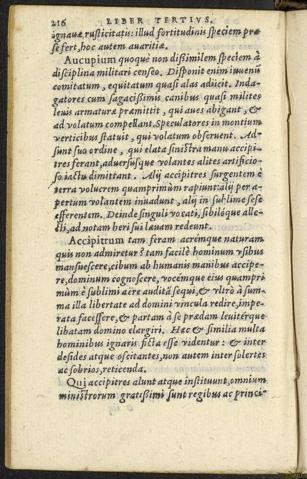 216 LIBER TERTIVS.
ignauæ, rusticitatis: illud fortitudinis speciem præ
se fert, hoc autem auaritiæ.
Aucupium quoque non dissimilem speciem à
disciplina militari censeo. Disponit enim iuuenū
comitatum, equitatum quasi alas adiicit. Inda-
gatores cum sagacissimis canibus quasi milites
leuis armaturæ præmittit, qui aues abigant, &
ad volatum compellant. Speculatores in montium
verticibus statuit, qui volatum obseruent. Ad-
sunt suo ordine, qui elata sinistra manu accipi-
tres ferant, aduersusque volantes alites artificio-
so iactu dimittant. Alij accipitres surgentem è
terra volucrem quamprimùm rapiunt: alij per a-
pertum volantem inuadunt, alij in sublime sese
efferentem. Deinde singuli vocati, sibilóque alle-
cti, ad notam heri sui læuam redeunt.
Accipitrum tam feram acrémque naturam
quis non admiretur? tam facilè hominum vsibus
mansuescere, cibum ab humanis manibus accipe-
re, dominum cognoscere, vocémque eius quampri
mùm è sublimi aere auditā sequi, & vltrò à sum-
ma illa libertate ad domini vincula redire, impe-
rata facessere, & partam à se prædam leuitérque
libatam domino elargiri. Hæc & similia multa
hominibus ignaris ficta esse videntur: & inter
desides atque oscitantes, non autem inter solertes
ac sobrios, reticenda.
Qui accipitres alunt atque instituunt, omnium
ministrorum gratissimi sunt regibus ac princi-